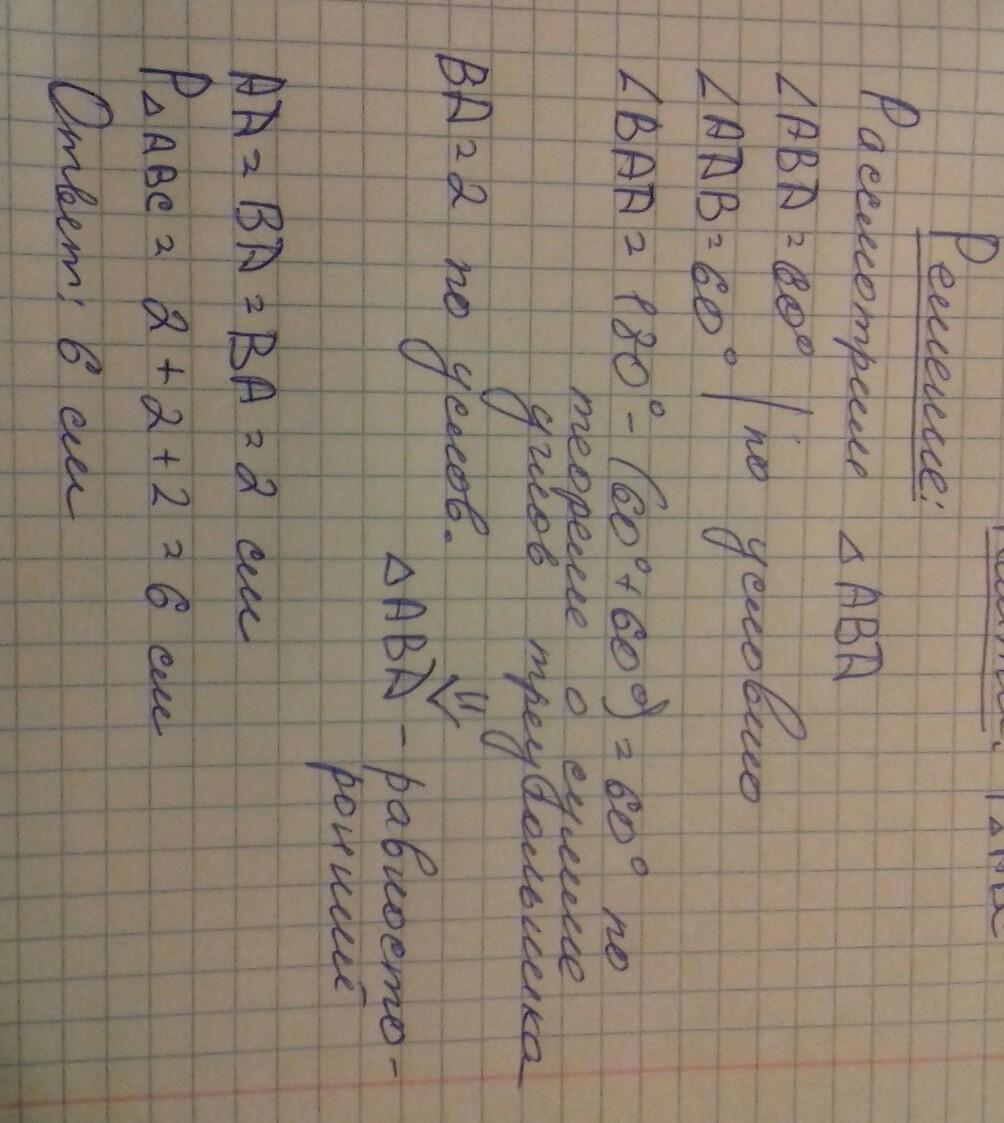 Решение:
Рассмотрим △ ABD
∠ABD = 60° | по условию
∠ADB = 60°
∠BAD = 180° - (60° + 60°) = 60° по
теореме о сумме
углов треугольника
BA = 2 по услов.
△ ABD - равносто-
ронний
AD = BD = BA = 2 см
P△ ABC = 2 + 2 + 2 = 6 см
Ответ: 6 см